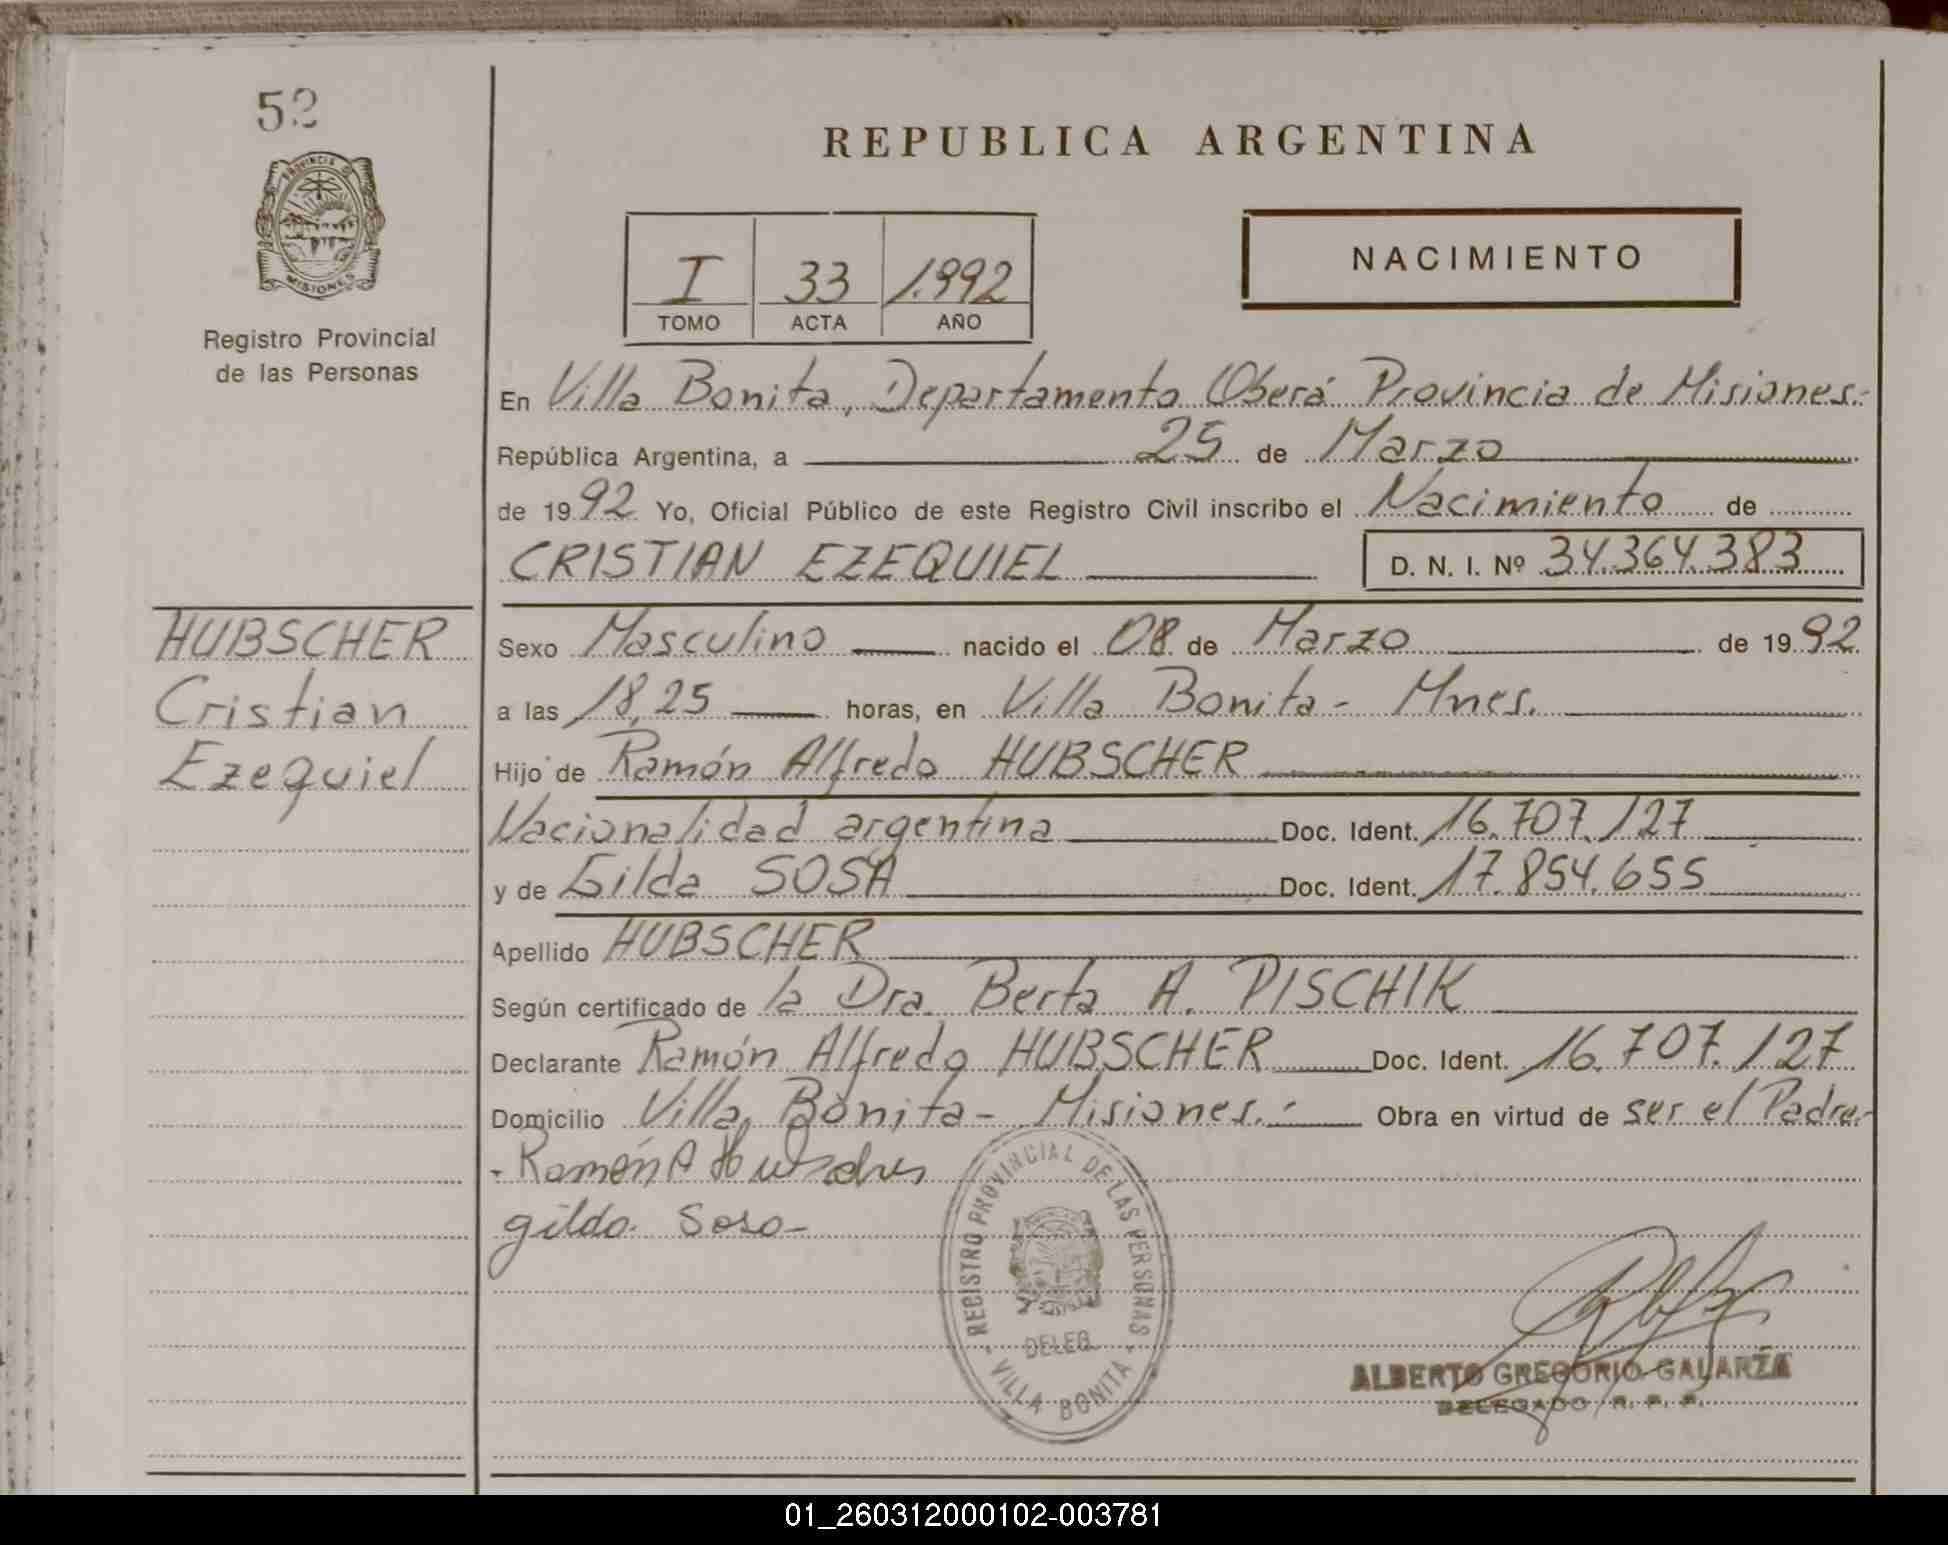 52
PROVINCIA
MISIONES
Registro Provincial
de las Personas
REPUBLICA ARGENTINA
I 33 1.992
TOMO ACTA AÑO
NACIMIENTO
En Villa Bonita, Departamento Oberá Provincia de Misiones.-
República Argentina, a 25 de Marzo
de 19 92 Yo, Oficial Público de este Registro Civil inscribo el Nacimiento de
CRISTIAN EZEQUIEL D. N. I. Nº 34.364.383
HUBSCHER
Cristian
Ezequiel
Sexo Masculino nacido el 08 de Marzo de 19 92
a las 18,25 horas, en Villa Bonita - Mnes.
Hijo de Ramón Alfredo HUBSCHER
Nacionalidad argentina Doc. Ident. 16.707.127
y de Gilda SOSA Doc. Ident. 17.854.655
Apellido HUBSCHER
Según certificado de la Dra. Berta A. PISCHIK
Declarante Ramón Alfredo HUBSCHER Doc. Ident. 16.707.127
Domicilio Villa Bonita - Misiones.- Obra en virtud de ser el Padre.-
Ramón A Hubscher
gilda Sosa -
REGISTRO PROVINCIAL DE LAS PERSONAS
DELEG.
- VILLA BONITA -
ALBERTO GREGORIO GALARZA
DELEGADO R. P. P.
01_260312000102-003781